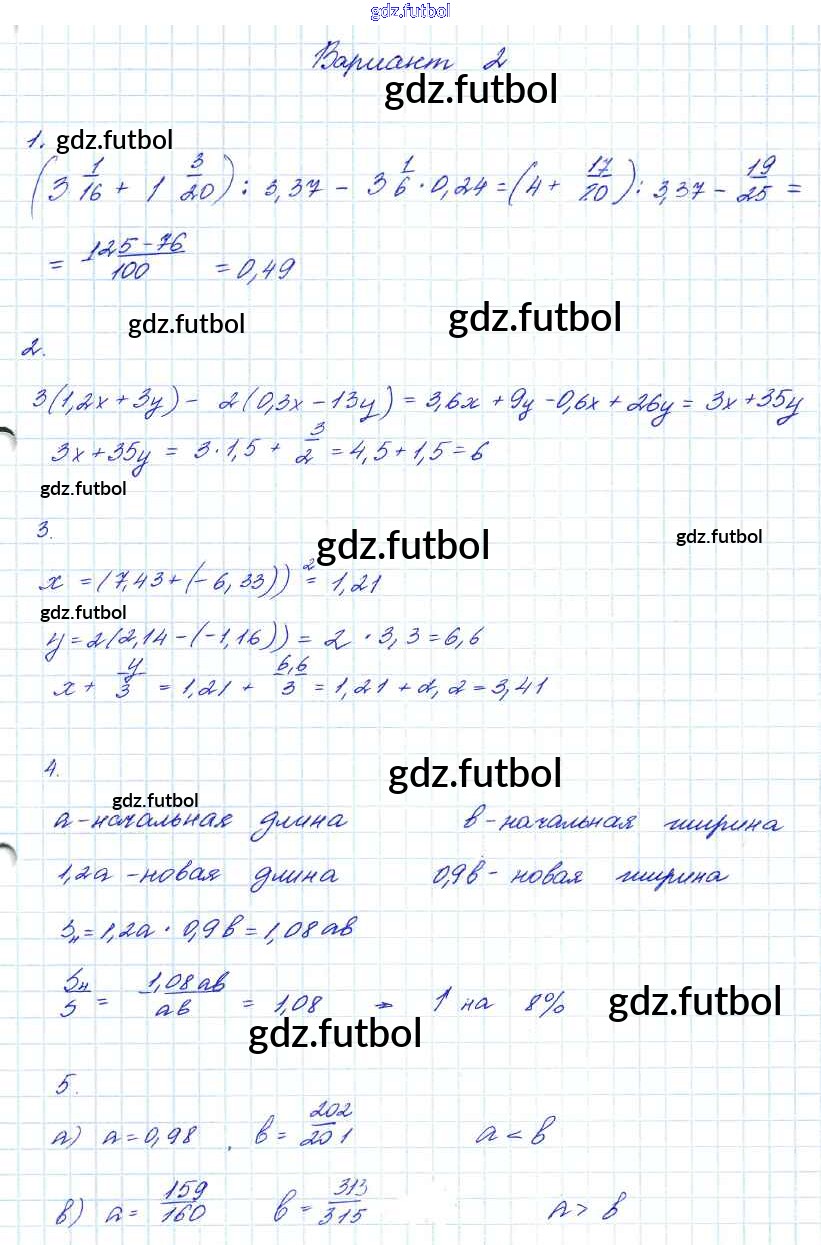 gdz.futbol
Вариант 2
gdz.futbol
1. gdz.futbol
(3 1/16 + 1 3/20) : 3,37 - 3 1/6 · 0,24 = (4 + 17/20) : 3,37 - 19/25 =
= 125-76/100 = 0,49
gdz.futbol gdz.futbol
2.
3(1,2x + 3y) - 2(0,3x - 13y) = 3,6x + 9y - 0,6x + 26y = 3x + 35y
3x + 35y = 3 · 1,5 + 3/2 = 4,5 + 1,5 = 6
gdz.futbol
3.
gdz.futbol gdz.futbol
x = (7,43 + (-6,33))² = 1,21
gdz.futbol
y = 2(2,14 - (-1,16)) = 2 · 3,3 = 6,6
x + y/3 = 1,21 + 6,6/3 = 1,21 + 2,2 = 3,41
4. gdz.futbol
gdz.futbol
a - начальная длина в - начальная ширина
1,2a - новая длина 0,9в - новая ширина
Sн = 1,2a · 0,9в = 1,08 ав
Sн/S = 1,08 ав/ав = 1,08 → ↑ на 8% gdz.futbol
gdz.futbol
5.
а) a = 0,98, в = 202/201 a < в
в) a = 159/160 в = 313/315 a > в